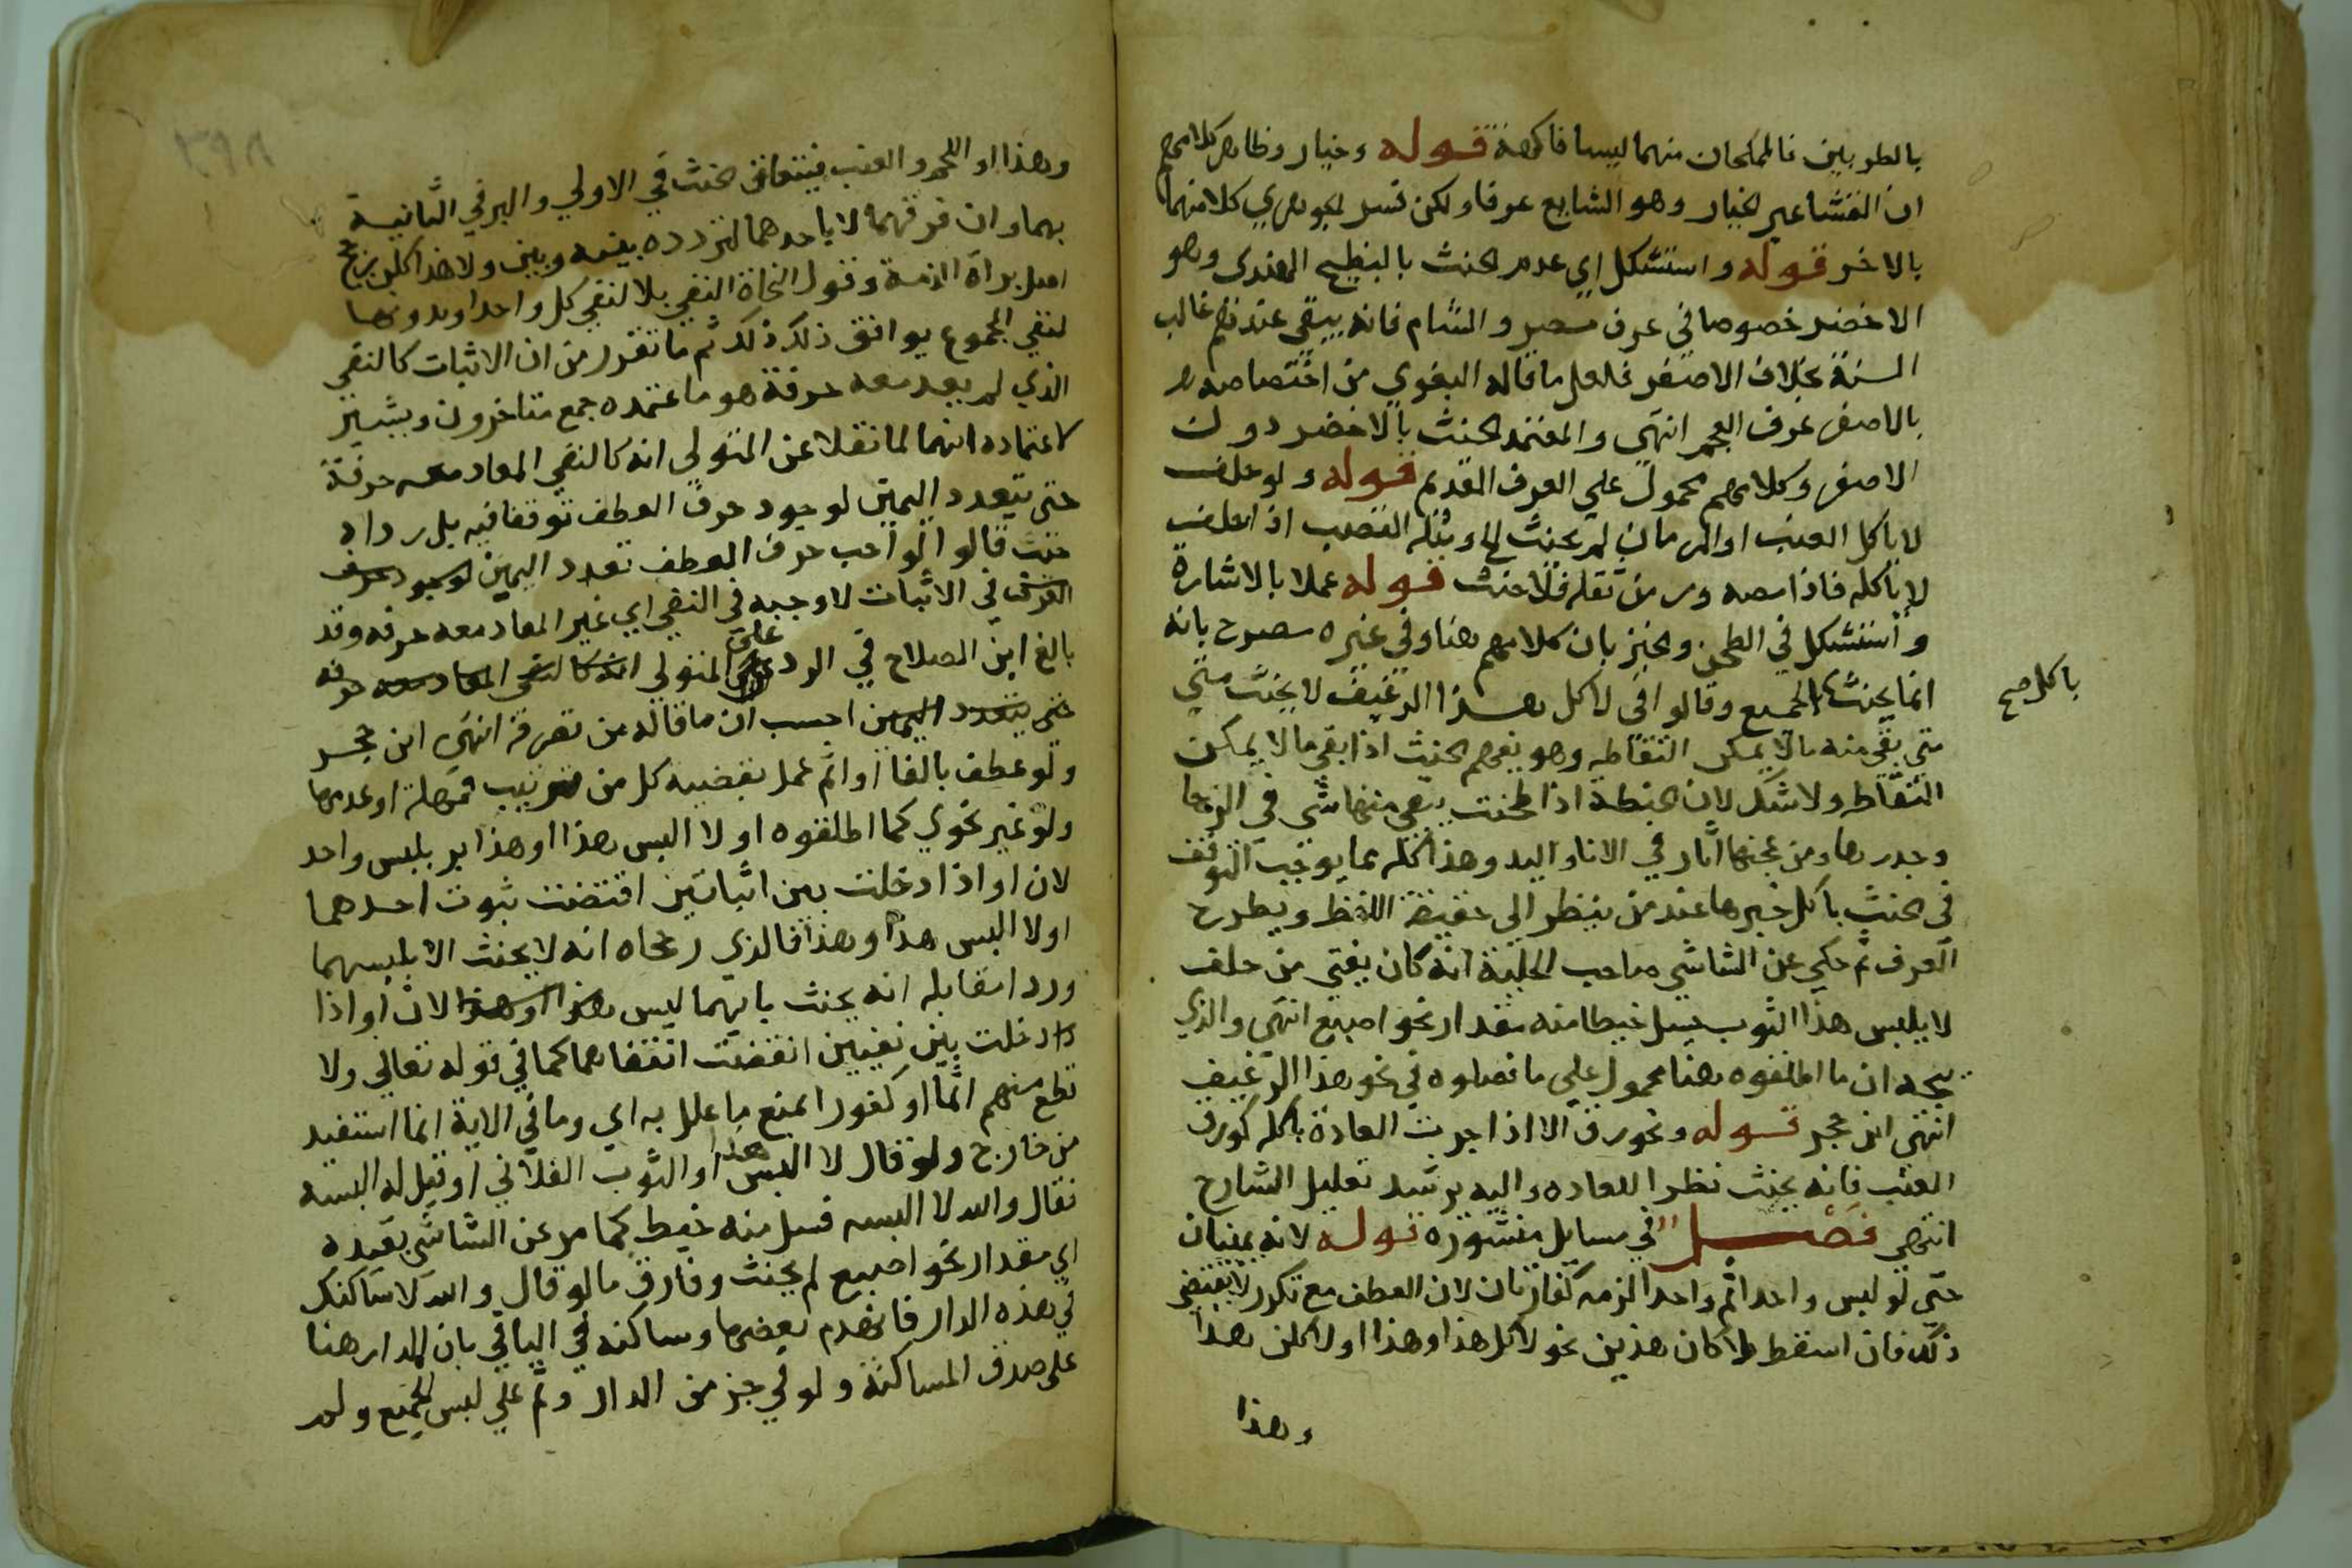 بالطربين فالمملحان منهما ليسا فاكهة قوله وخيار وظاهر كلامهم
ان القثا غير الخيار وهو الشايع عرفا ولكن فسر الجوهري كلا منهما
بالاخر قوله واستشكل اي عدم الحنث بالبطيخ الهندي وهو
الاخضر خصوصا في عرف مصر والشام فانه يبقي عندهم غالب
السنة بخلاف الاصفر فلعل ما قاله البغوي من اختصاصه
بالاصفر عرف العجم انتهي والمعتمد الحنث بالاخضر دون
الاصفر وكلامهم محمول علي العرف القديم قوله ولو حلف
لا ياكل العنب او الرمان لم يحنث الخ ومثله القصب اذا حلف
لا ياكله فاذا مصه ورمي ثفله فلا حنث قوله عملا بالاشارة
واستشكل في الطحن والخبز بان كلامهم هنا وفي غيره مصرح بانه
انما يحنث الجميع وقالوا في لا اكل هذا الرغيف لا يحنث متي
باكل صح
متي بقي منه ما لا يمكن التقاطه وهو يفهم الحنث اذا بقي ما لا يمكن
التقاطه ولا شك لان الحنطة اذا طحنت يبقي منها شي في الرحا
وجدرها ومن عجنها اثار في الانا واليد وهذا كله مما يوجب التوقف
في الحنث باكل خبزها عند من ينظر الي حقيقة اللفظ ويطرح
العرف ثم حكي عن الشاشي صاحب الحلية انه كان يفتي من حلف
لا يلبس هذا الثوب يسل خيطا منه مقدار نحو اصبع انتهي والذي
يتجه ان ما اطلقوه هنا محمول علي ما فصلوه في نحو هذا الرغيف
انتهي ابن حجر قوله ونحو ورق الا اذا جرت العادة باكله كورق
العنب فانه يحنث نظرا للعاده واليه يرشد تعليل الشارح
انتهي فصل في مسايل منثوره قوله لانه يمينان
حتي لو لبس واحدا ثم واحدا لزمه كفارتان لان العطف مع تكرر لا يقتضي
ذلك فان اسقط لا كان هذين نحو لا اكل هذا وهذا او لاكلن هذا
وهذا
وهذا او اللحم والعنب فيتعلق الحنث في الاولي والبر في الثانية
بهما وان فرقهما لا باحدهما لتردده بينه وبين ولا هذا كلن يرجح
اصل براة الذمة وقول النحاة النفي بلا لنفي كل واحد وبدونها
لنفي المجموع يوافق ذلك ذلك ثم ما تقرر من ان الاثبات كالنفي
الذي لم يعد معه حرفه هو ما اعتمده جمع متاخرون ويشير
كاعتماده انهما لما نقلا عن المتولي انه كالنفي المعاد معه حرفة
حتي يتعدد اليمين لوجود حرف العطف توقفا فيه بل رداه
حيث قالوا لو اوجب حرف العطف تعدد اليمين لوجود حرف
العرف في الاثبات لاوجبه في النفي اي غير المعاد معه حرفه وقد
بالغ ابن الصلاح في الرد علي المتولي انه كالنفي المعاد معه حرفه
حتي يتعدد اليمين احسب ان ما قاله من تصرفه انتهي ابن حجر
ولو عطف بالفا او ثم عمل بقضيه كل من ترتيب فمهلة او عدمها
ولو غير نحوي كما اطلقوه او لا البس هذا او هذا بر بلبس واحد
لان او اذا دخلت بين اثباتين اقتضت ثبوت احدهما
او لا البس هذا وهذا فالذي رجحاه انه لا يحنث الا بلبسهما
وردا مقابله انه يحنث بايهما لبس هذا او هذا لان او اذا
دخلت بين نفيين اقتضت انتفاهما كما في قوله تعالي ولا
تطع منهم اثما او كفورا بمنع ما علل به اي وما في الاية انما استفيد
من خارج ولو قال لا البس هذا او الثوب الفلاني او قيل له البسه
فقال والله لا البسه فسل منه خيط كما مر عن الشاشي بقيده
اي مقدار نحو اصبع لم يحنث وفارق ما لو قال والله لا ساكنتك
في هذه الدار فانهدم بعضها وساكنه في الباقي بان المدار هنا
علي صدق المساكنة ولو في جز من الدار وثم علي لبس الجميع ولم